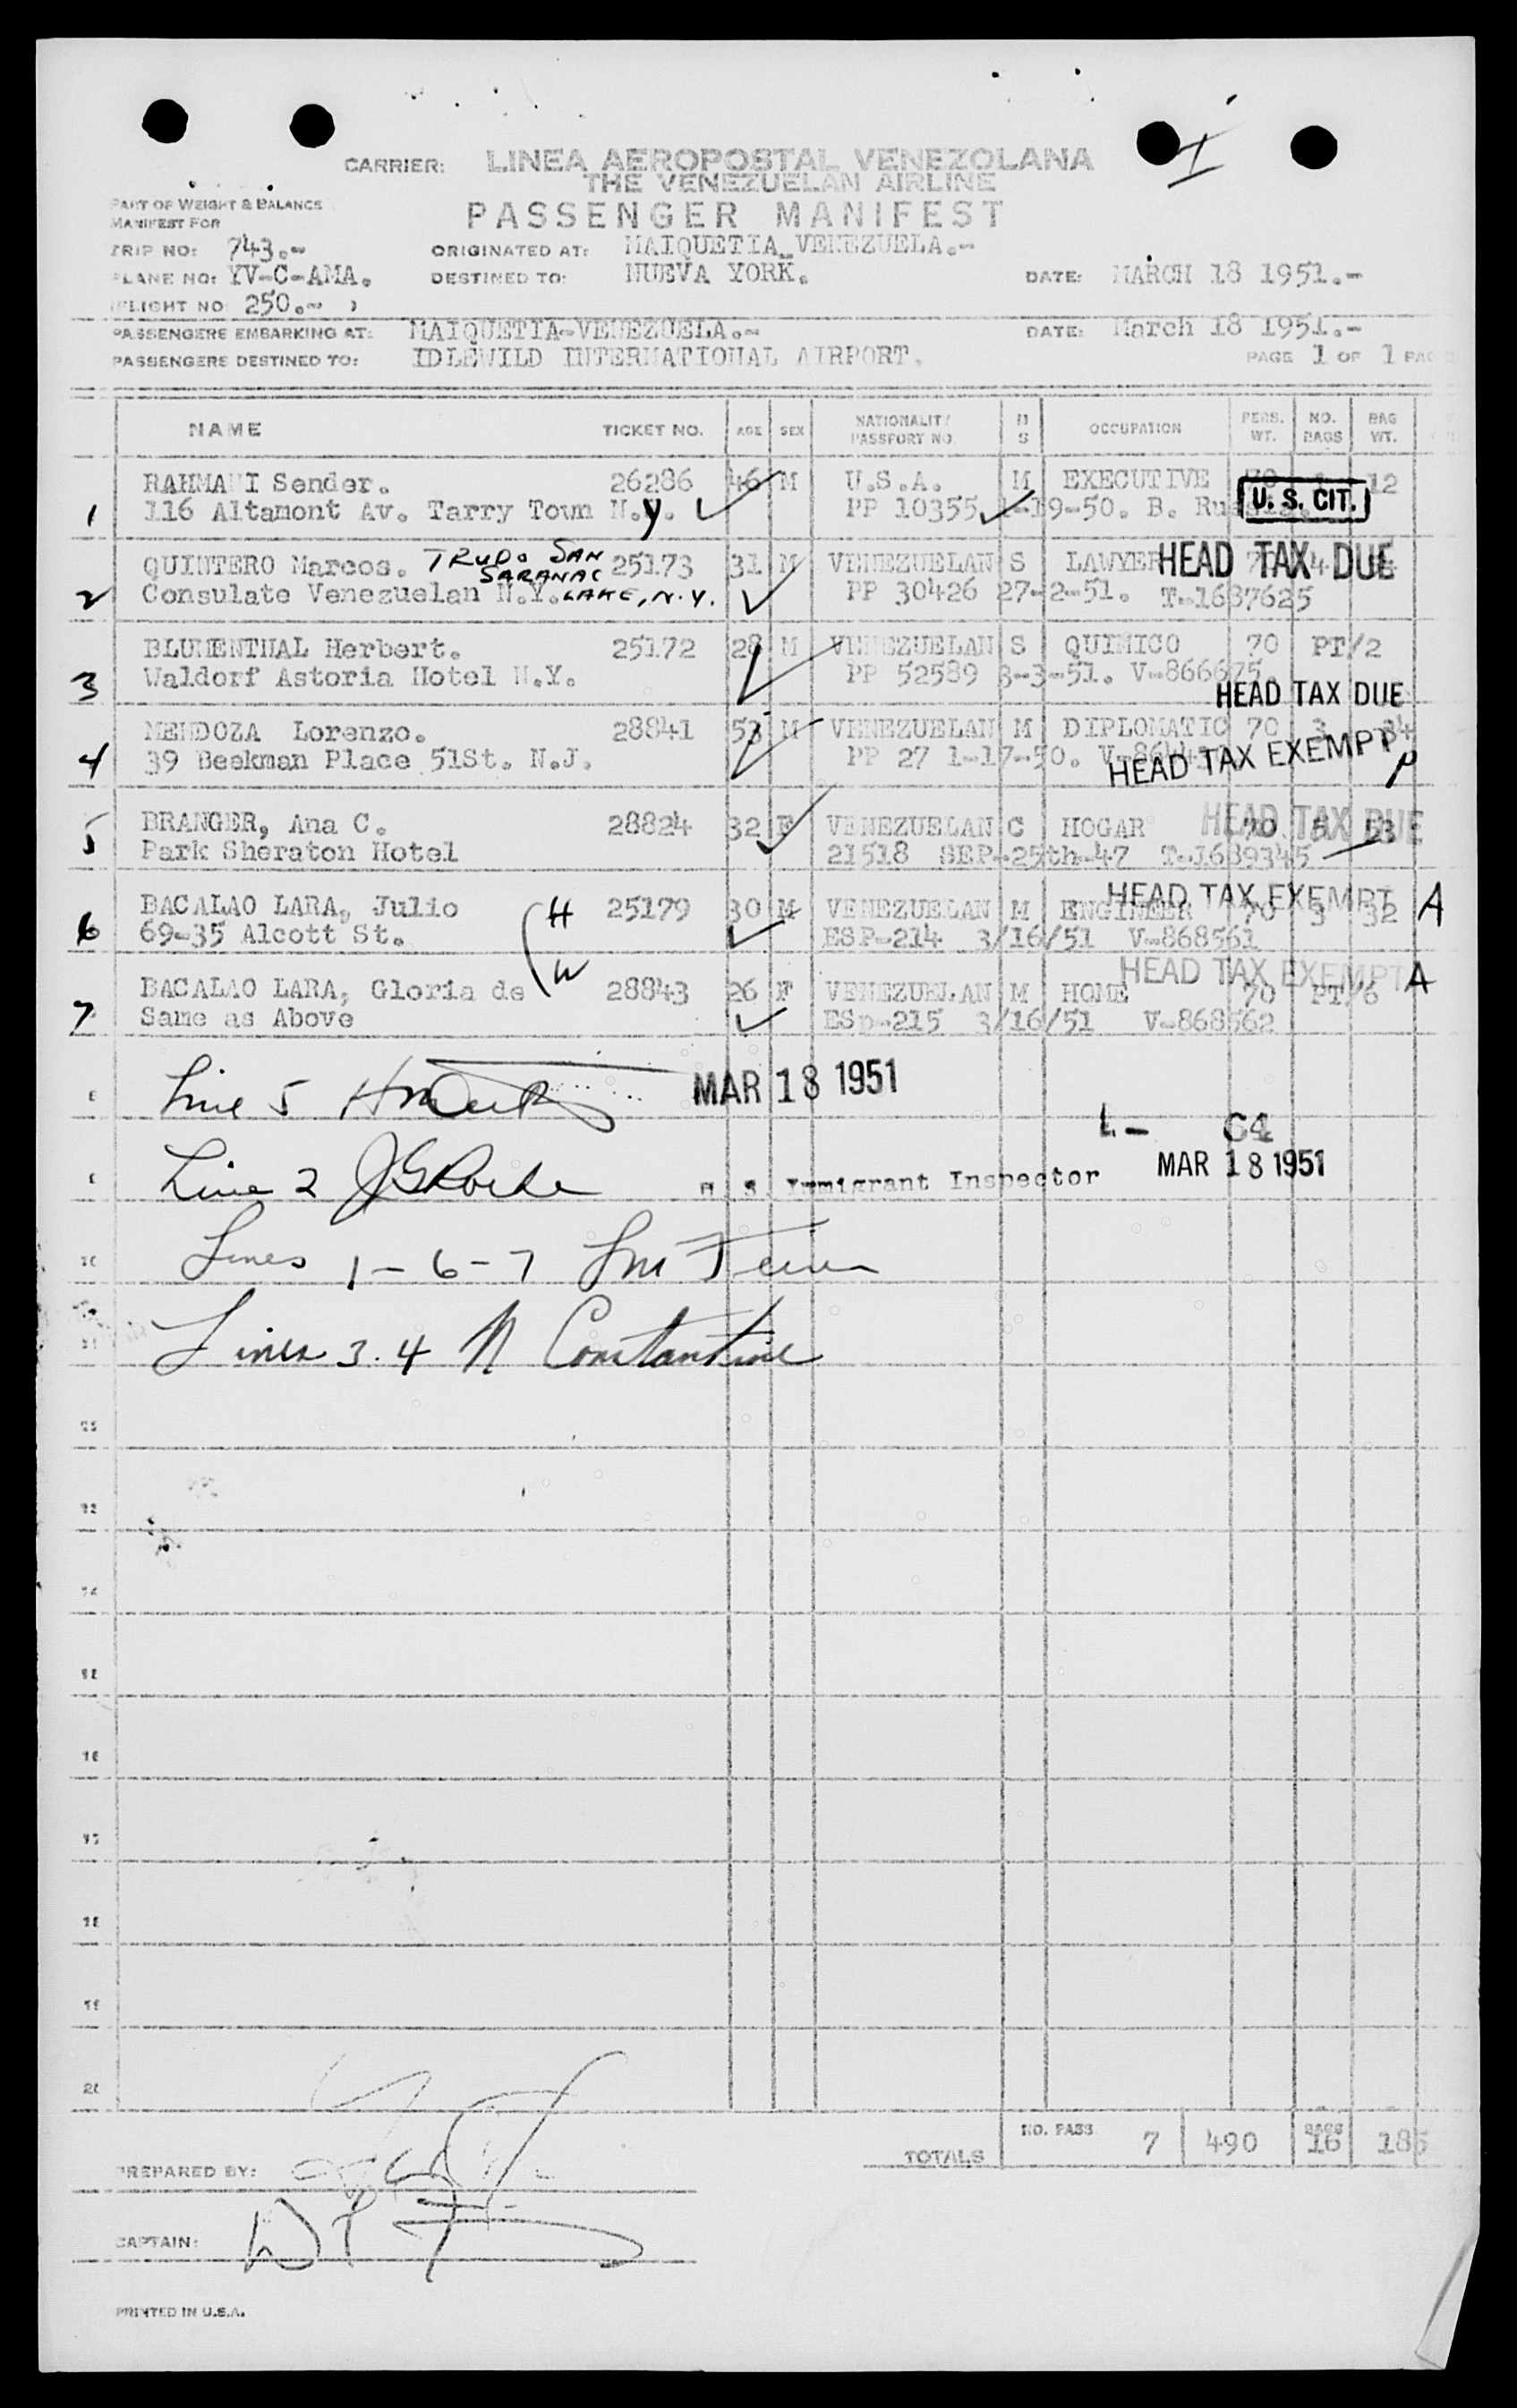 CARRIER: LINEA AEROPOSTAL VENEZOLANA
THE VENEZUELAN AIRLINE
PART OF WEIGHT & BALANCE
MANIFEST FOR
PASSENGER MANIFEST
TRIP NO: 743.- ORIGINATED AT: MAIQUETIA_VENEZUELA.-
PLANE NO: YV-C-AMA. DESTINED TO: NUEVA YORK. DATE: MARCH 18 1951.-
FLIGHT NO 250.-
PASSENGERS EMBARKING AT: MAIQUETIA-VENEZUELA.- DATE: March 18 1951.-
PASSENGERS DESTINED TO: IDLEWILD INTERNATIONAL AIRPORT. PAGE 1 OF 1
NAME TICKET NO. AGE SEX NATIONALITY M OCCUPATION PERS. NO. BAG
PASSPORT NO S WT. BAGS WT.
RAHMANI Sender. 26286 46 M U.S.A. M EXECUTIVE 70 1 12
1 116 Altamont Av. Tarry Town N.Y. PP 10355 1-19-50. B. Russia. U. S. CIT.
QUINTERO Marcos. TRUDO SAN 25173 31 M VENEZUELAN S LAWYER HEAD TAX DUE 4
SARANAC
2 Consulate Venezuelan N.Y. LAKE, N.Y. PP 30426 27-2-51. T-1637625
BLUMENTHAL Herbert. 25172 28 M VENEZUELAN S QUIMICO 70 PT/2
3 Waldorf Astoria Hotel N.Y. PP 52589 3-3-51. V-866675.
HEAD TAX DUE
MENDOZA Lorenzo. 28841 53 M VENEZUELAN M DIPLOMATIC 70 3 34
4 39 Beekman Place 51St. N.J. PP 27 1-17-50. HEAD TAX EXEMPT P
BRANGER, Ana C. 28824 32 F VENEZUELAN C HOGAR 70 5 53 HEAD TAX DUE
5 Park Sheraton Hotel 21518 SEP-25th-47 T-1689345
HEAD TAX EXEMPT A
BACALAO LARA, Julio H 25179 30 M VENEZUELAN M ENGINEER 70 3 32
6 69-35 Alcott St. ESP-214 3/16/51 V-868561
W HEAD TAX EXEMPT A
BACALAO LARA, Gloria de 28843 26 F VENEZUELAN M HOME 70 PT/6
7 Same as Above ESp-215 3/16/51 V-868562
Line 5 MAR 18 1951
L- C4
Line 2 U S Immigrant Inspector MAR 18 1951
Lines 1-6-7
Lines 3.4 N Constantine
TOTALS NO. PASS 7 490 BAGS 16 185
PREPARED BY:
CAPTAIN:
PRINTED IN U.S.A.